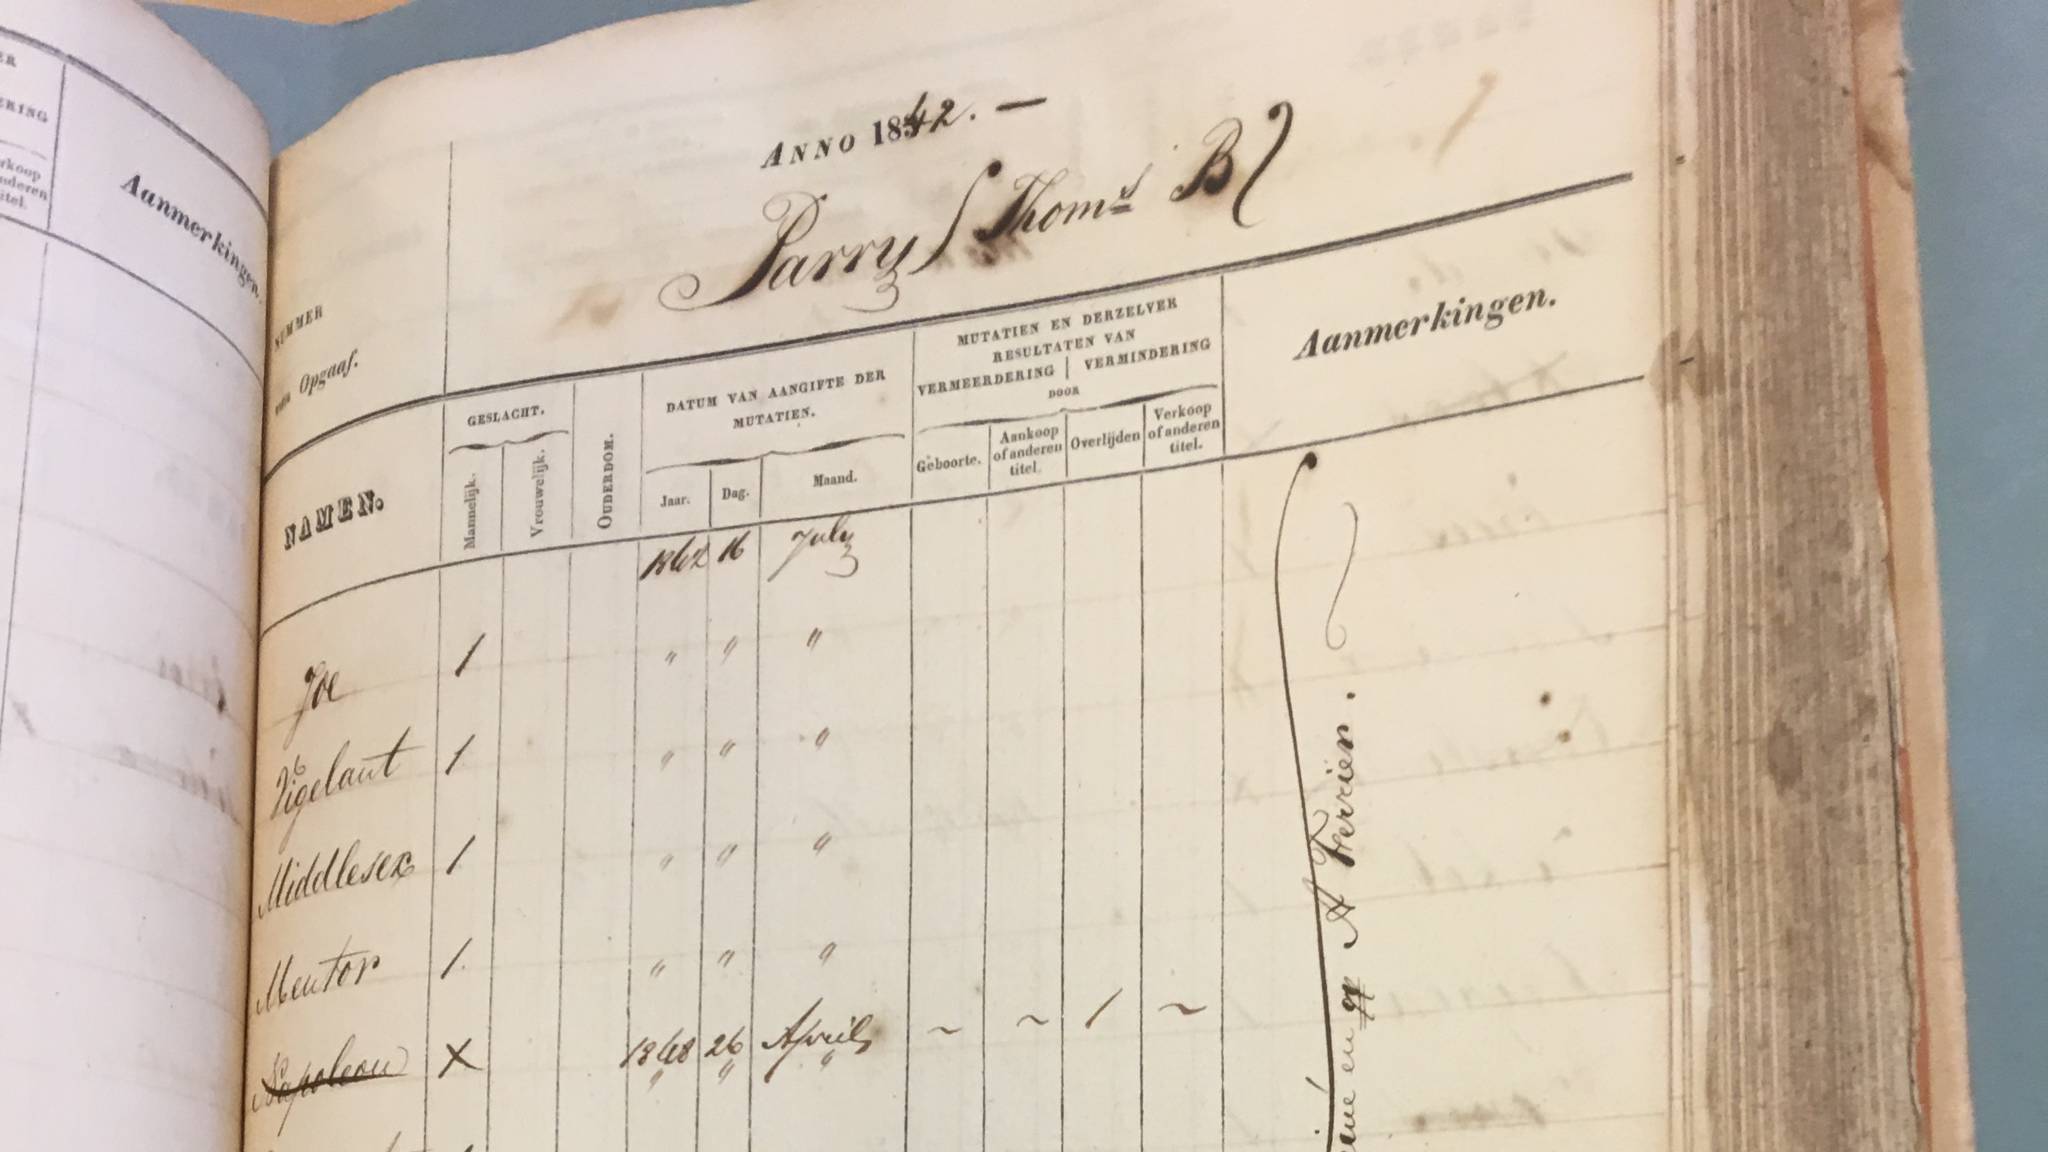 ERING
Aanmerkingen.
ANNO 1842. —
Parry / Thoms B
NUMMER
van Opgaaf.
NAMEN.
GESLACHT.
Mannelijk.
Vrouwelijk.
OUDERDOM.
DATUM VAN AANGIFTE DER
MUTATIEN.
Jaar.
Dag.
Maand.
MUTATIEN EN DERZELVER
RESULTATEN VAN
VERMEERDERING | VERMINDERING
DOOR
Geboorte.
Aankoop
of anderen
titel.
Overlijden
Verkoop
of anderen
titel.
Aanmerkingen.
1842 16 July
Joe 1 " " "
Vigelant 1 " " "
Middlesex 1 " " "
Mentor 1. " " "
Napoleon X 1848 26 April ~ ~ 1 ~
" " "
en qq A Ferrier.